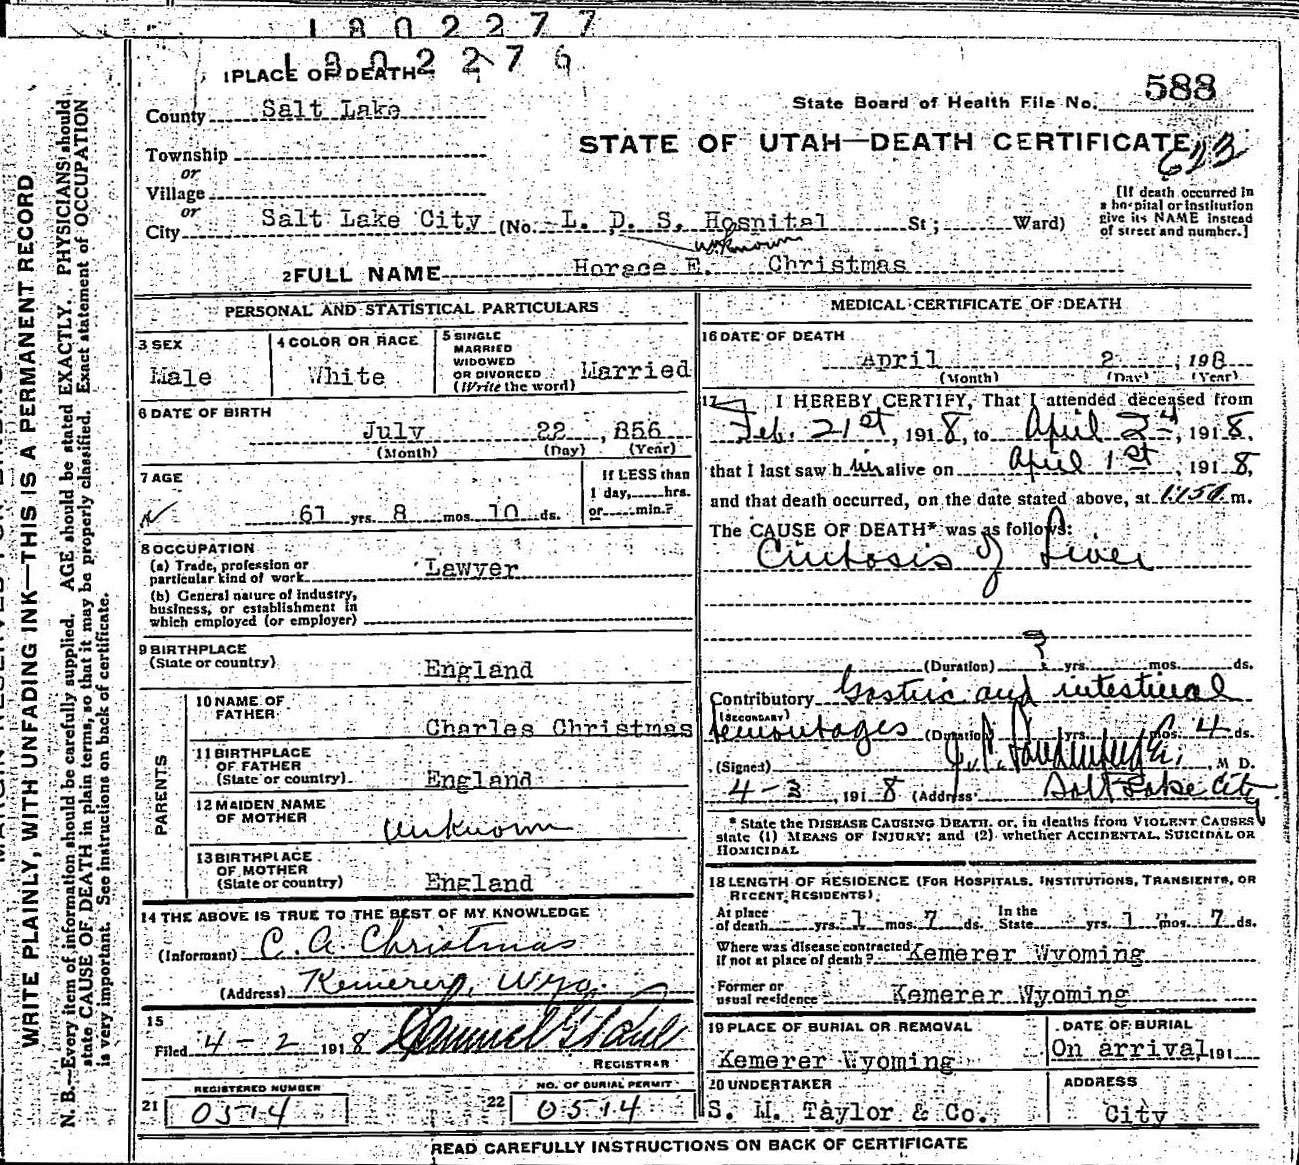 1802277
1802276
1 PLACE OF DEATH
County Salt Lake
State Board of Health File No. 588
Township
or
Village
or
City Salt Lake City (No. L. D. S. Hospital St; Ward)
STATE OF UTAH—DEATH CERTIFICATE
623
[If death occurred in
a hospital or institution
give its NAME instead
of street and number.]
unknown
2 FULL NAME Horace E. Christmas
PERSONAL AND STATISTICAL PARTICULARS
3 SEX
Male
4 COLOR OR RACE
White
5 SINGLE
MARRIED
WIDOWED
OR DIVORCED
(Write the word) Married
6 DATE OF BIRTH
July 22, 856
(Month) (Day) (Year)
7 AGE
61 yrs. 8 mos. 10 ds.
If LESS than
1 day,......hrs.
or......min.?
8 OCCUPATION
(a) Trade, profession or
particular kind of work Lawyer
(b) General nature of industry,
business, or establishment in
which employed (or employer)
9 BIRTHPLACE
(State or country)
England
PARENTS
10 NAME OF
FATHER
Charles Christmas
11 BIRTHPLACE
OF FATHER
(State or country)
England
12 MAIDEN NAME
OF MOTHER
Unknown
13 BIRTHPLACE
OF MOTHER
(State or country)
England
14 THE ABOVE IS TRUE TO THE BEST OF MY KNOWLEDGE
(Informant) C. A. Christmas
(Address) Kemerer, Wyo.
15
Filed 4-2 1918 Samuel G
REGISTRAR
REGISTERED NUMBER
21 0514
NO. OF BURIAL PERMIT
22 0514
MEDICAL CERTIFICATE OF DEATH
16 DATE OF DEATH
April 2, 198
(Month) (Day) (Year)
17 I HEREBY CERTIFY, That I attended deceased from
Feb. 21st, 1918, to April 2, 1918,
that I last saw him alive on April 1st, 1918,
and that death occurred, on the date stated above, at m.
The CAUSE OF DEATH* was as follows:
Cirrhosis of Liver
(Duration) ? yrs. mos. ds.
Contributory Gastric and intestinal
(SECONDARY)
hemorrhages (Duration) yrs. mos. 4 ds.
(Signed) M D.
4-2, 1918 (Address) Salt Lake City
* State the DISEASE CAUSING DEATH, or, in deaths from VIOLENT CAUSES
state (1) MEANS OF INJURY; and (2) whether ACCIDENTAL, SUICIDAL OR
HOMICIDAL
18 LENGTH OF RESIDENCE (FOR HOSPITALS, INSTITUTIONS, TRANSIENTS, OR
RECENT RESIDENTS).
At place
of death yrs. 1 mos. 7 ds.
In the
State yrs. 1 mos. 7 ds.
Where was disease contracted
if not at place of death? Kemerer Wyoming
Former or
usual residence Kemerer Wyoming
19 PLACE OF BURIAL OR REMOVAL
Kemerer Wyoming
DATE OF BURIAL
On arrival 191
20 UNDERTAKER
S. M. Taylor & Co.
ADDRESS
City
READ CAREFULLY INSTRUCTIONS ON BACK OF CERTIFICATE
WRITE PLAINLY, WITH UNFADING INK—THIS IS A PERMANENT RECORD
N. B.—Every item of information should be carefully supplied. AGE should be stated EXACTLY. PHYSICIANS should
state CAUSE OF DEATH in plain terms, so that it may be properly classified. Exact statement of OCCUPATION
is very important. See instructions on back of certificate.